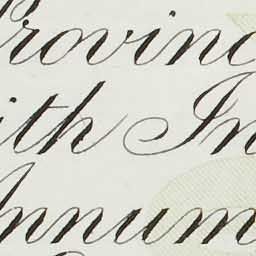 Provinc
ith In
Annum